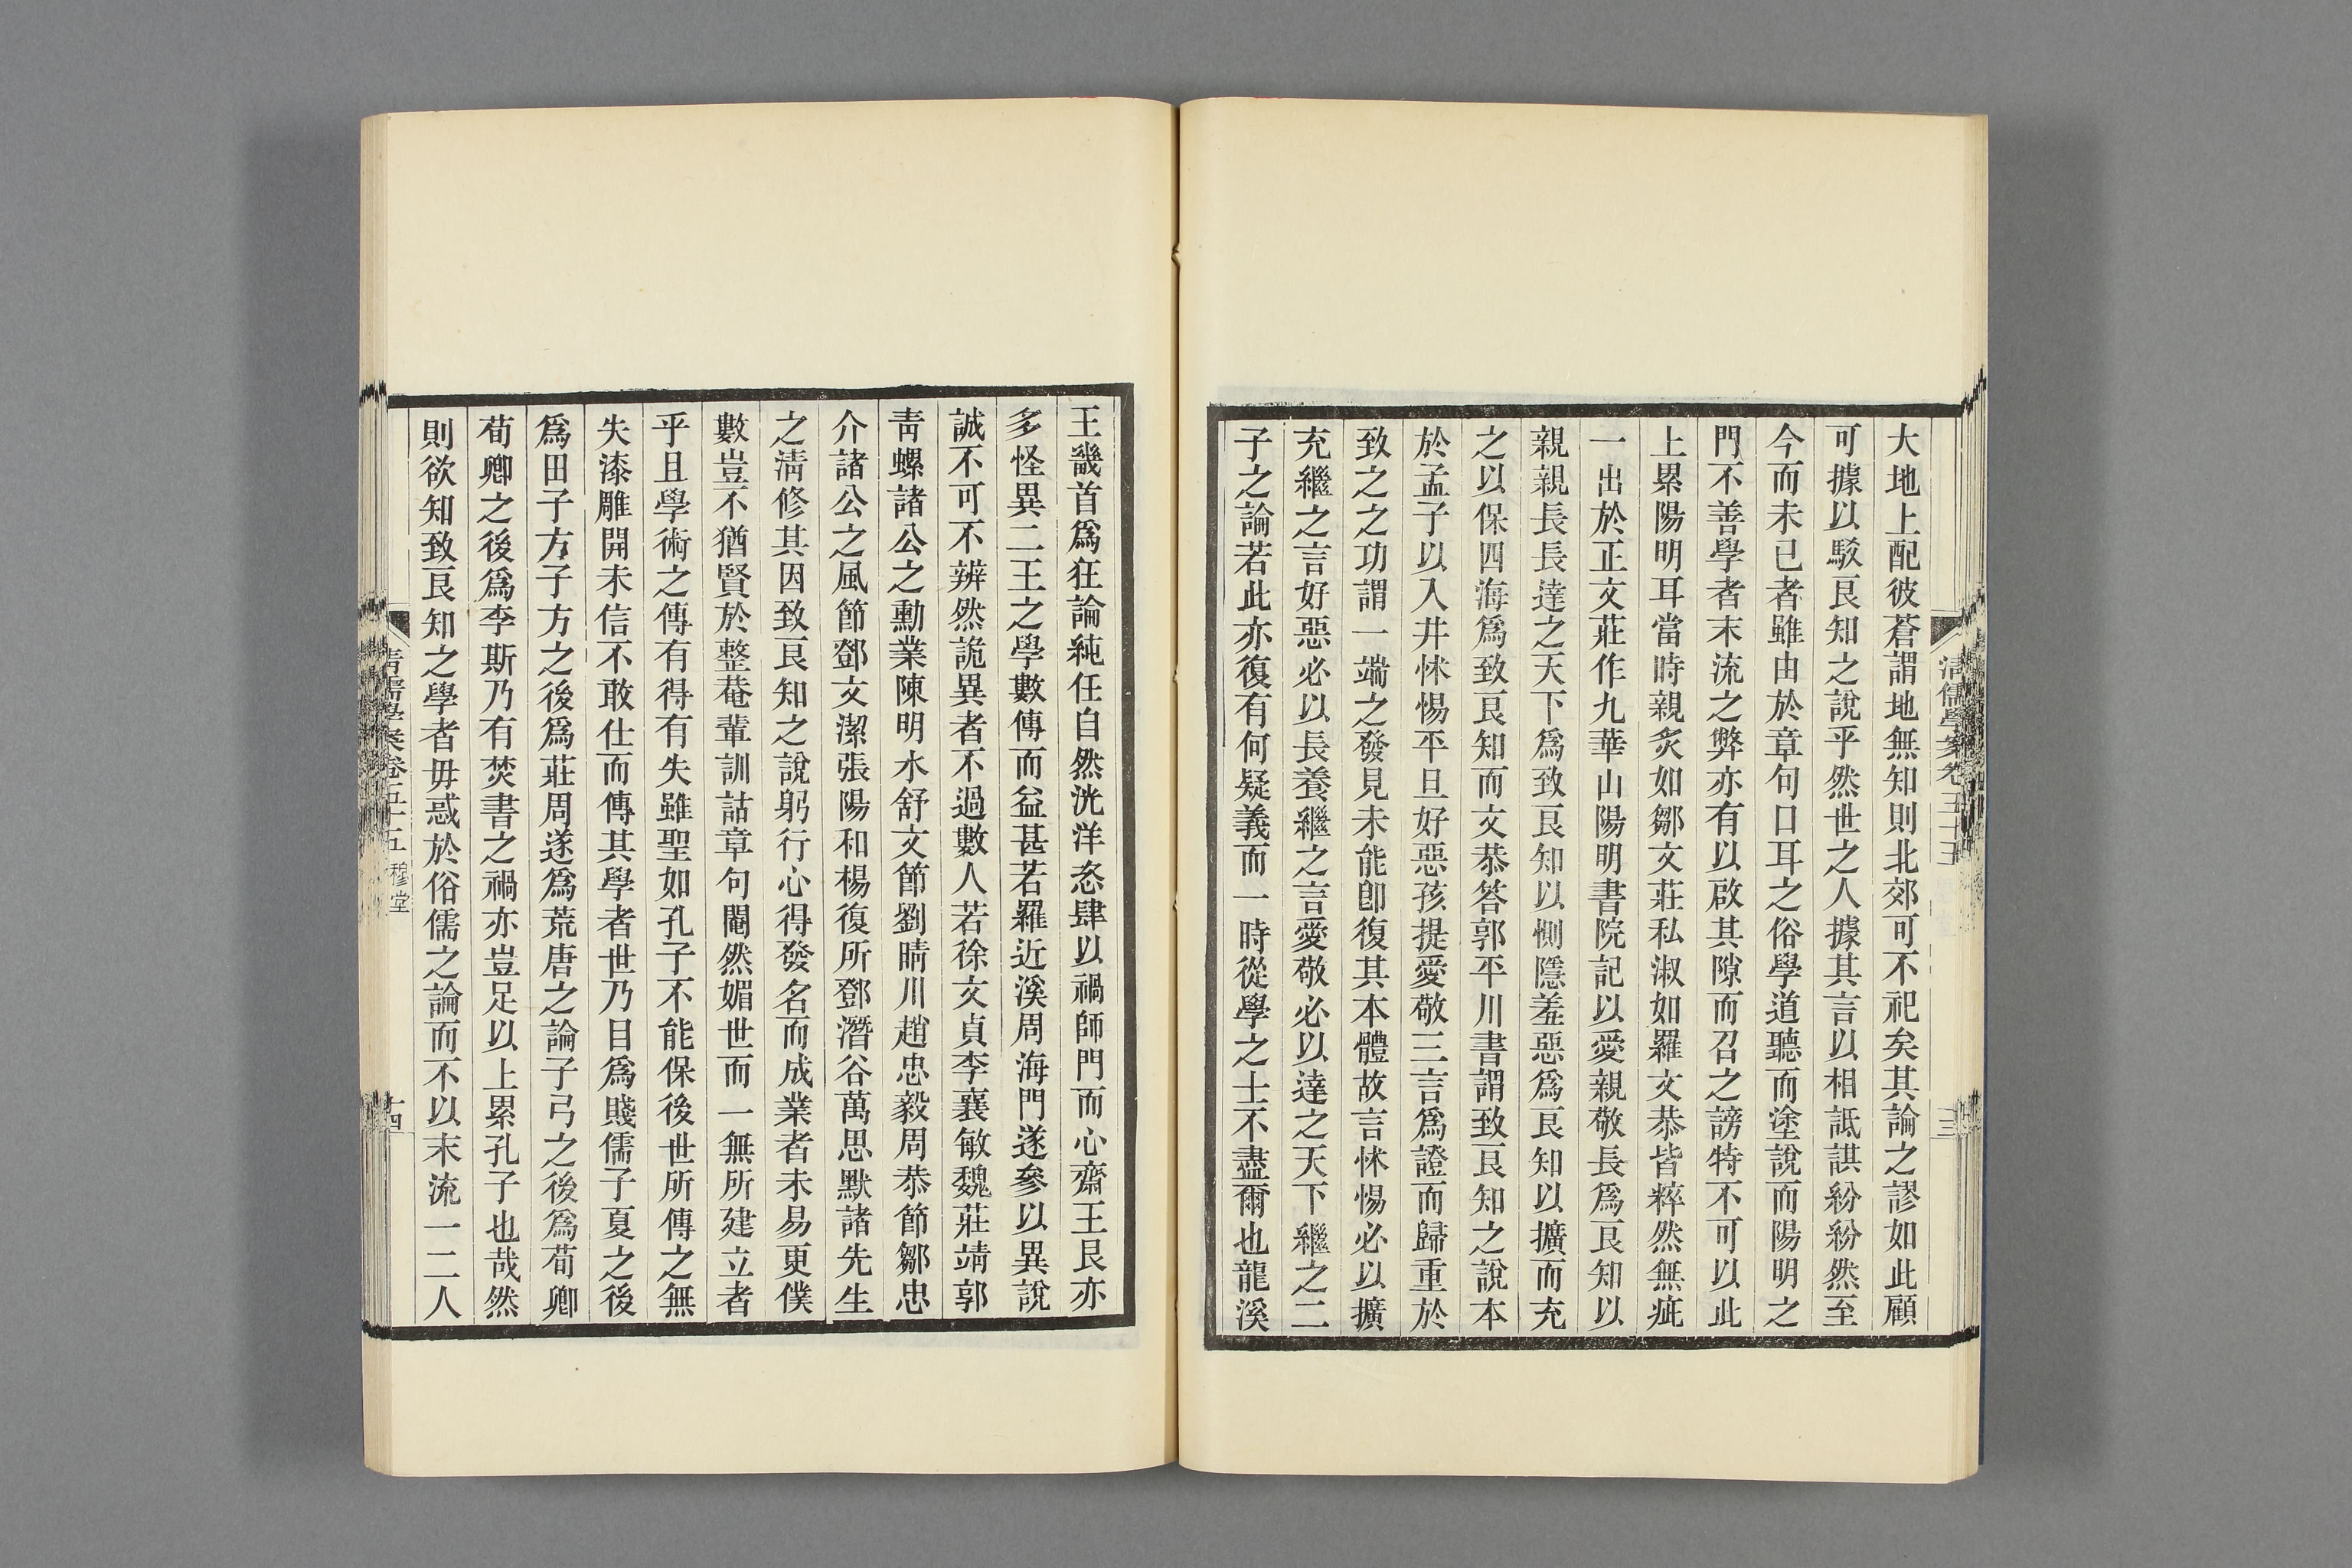 大地上配彼蒼謂地無知則北郊可不祀矣其論之謬如此顧
可據以駁良知之說乎然世之人據其言以相詆諆紛紛然至
今而未已者雖由於章句口耳之俗學道聽而塗說而陽明之
門不善學者末流之弊亦有以啟其隙而召之謗特不可以此
上累陽明耳當時親炙如鄒文莊私淑如羅文恭皆粹然無疵
一出於正文莊作九華山陽明書院記以愛親敬長爲良知以
親親長長達之天下爲致良知以惻隱羞惡爲良知以擴而充
之以保四海爲致良知而文恭答郭平川書謂致良知之說本
於孟子以入井怵惕平旦好惡孩提愛敬三言爲證而歸重於
致之之功謂一端之發見未能卽復其本體故言怵惕必以擴
充繼之言好惡必以長養繼之言愛敬必以達之天下繼之二
子之論若此亦復有何疑義而一時從學之士不盡爾也龍溪
清儒學案卷五十五
十三
王畿首爲狂論純任自然洸洋恣肆以禍師門而心齋王艮亦
多怪異二王之學數傳而益甚若羅近溪周海門遂參以異說
誠不可不辨然詭異者不過數人若徐文貞李襄敏魏莊靖郭
靑螺諸公之勳業陳明水舒文節劉晴川趙忠毅周恭節鄒忠
介諸公之風節鄧文潔張陽和楊復所鄧潛谷萬思默諸先生
之淸修其因致良知之說躬行心得發名而成業者未易更僕
數豈不猶賢於整菴輩訓詁章句閹然媚世而一無所建立者
乎且學術之傳有得有失雖聖如孔子不能保後世所傳之無
失漆雕開未信不敢仕而傳其學者世乃目爲賤儒子夏之後
爲田子方子方之後爲莊周遂爲荒唐之論子弓之後爲荀卿
荀卿之後爲李斯乃有焚書之禍亦豈足以上累孔子也哉然
則欲知致良知之學者毋惑於俗儒之論而不以末流一二人
清儒學案卷五十五 穆堂
十四